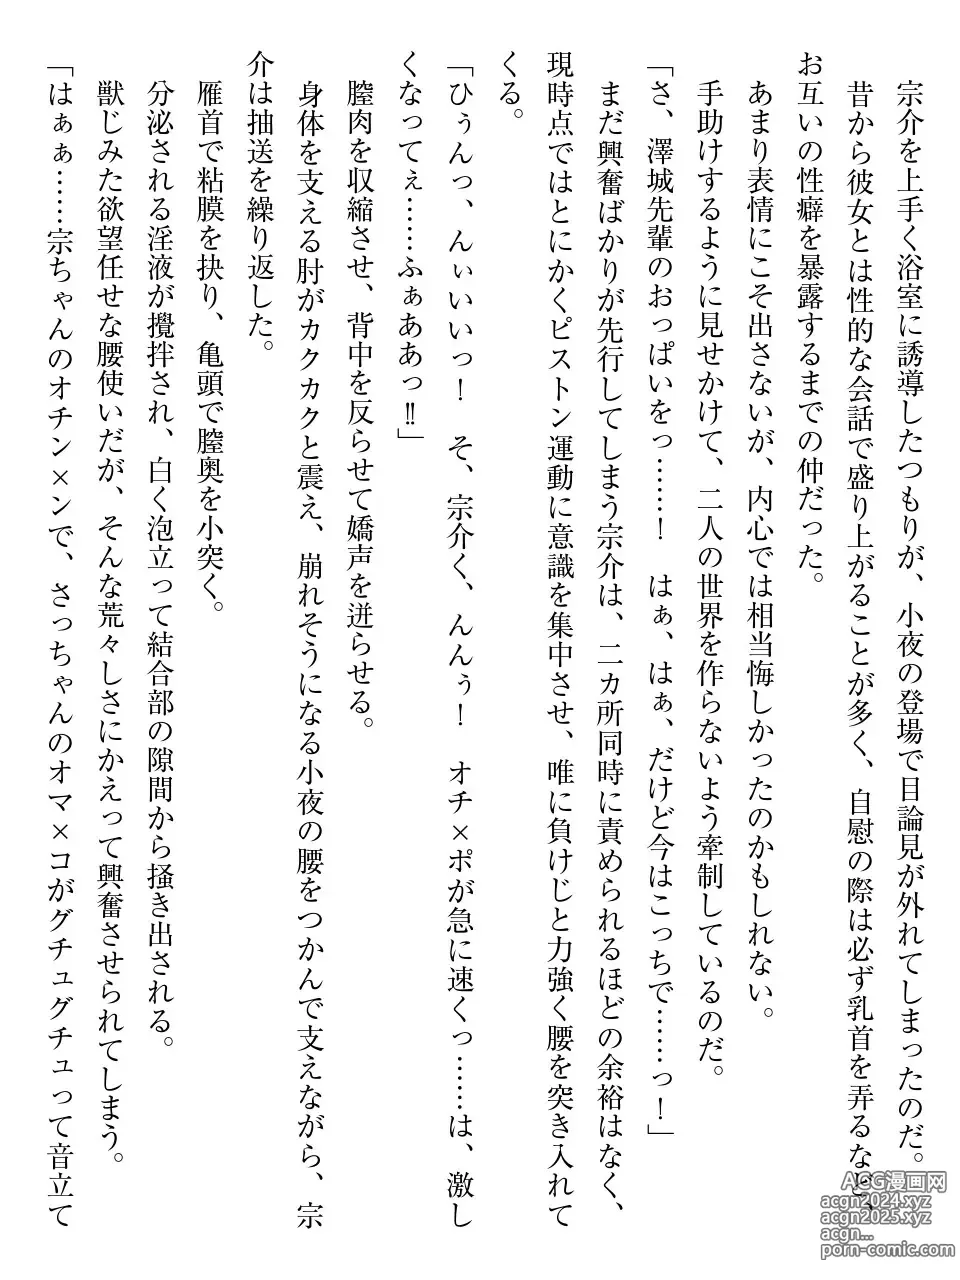 宗介を上手く浴室に誘導したつもりが、小夜の登場で目論見が外れてしまったのだ。
昔から彼女とは性的な会話で盛り上がることが多く、自慰の際は必ず乳首を弄るなど、
お互いの性癖を暴露するまでの仲だった。
あまり表情にこそ出さないが、内心では相当悔しかったのかもしれない。
手助けするように見せかけて、二人の世界を作らないよう牽制しているのだ。
「さ、澤城先輩のおっぱいをっ……！　はぁ、はぁ、だけど今はこっちで……っ！」
まだ興奮ばかりが先行してしまう宗介は、二カ所同時に責められるほどの余裕はなく、
現時点ではとにかくピストン運動に意識を集中させ、唯に負けじと力強く腰を突き入れて
くる。
「ひぅんっ、んぃいいっ！　そ、宗介く、んんぅ！　オチ×ポが急に速くっ……は、激し
くなってぇ……ふぁああっ‼」
膣肉を収縮させ、背中を反らせて嬌声を迸らせる。
身体を支える肘がカクカクと震え、崩れそうになる小夜の腰をつかんで支えながら、宗
介は抽送を繰り返した。
雁首で粘膜を抉り、亀頭で膣奥を小突く。
分泌される淫液が攪拌され、白く泡立って結合部の隙間から掻き出される。
獣じみた欲望任せな腰使いだが、そんな荒々しさにかえって興奮させられてしまう。
「はぁぁ……宗ちゃんのオチン×ンで、さっちゃんのオマ×コがグチュグチュって音立て
ACG漫画网
acgn2024.xyz
acgn2025.xyz
acgn...
porn-comic.com